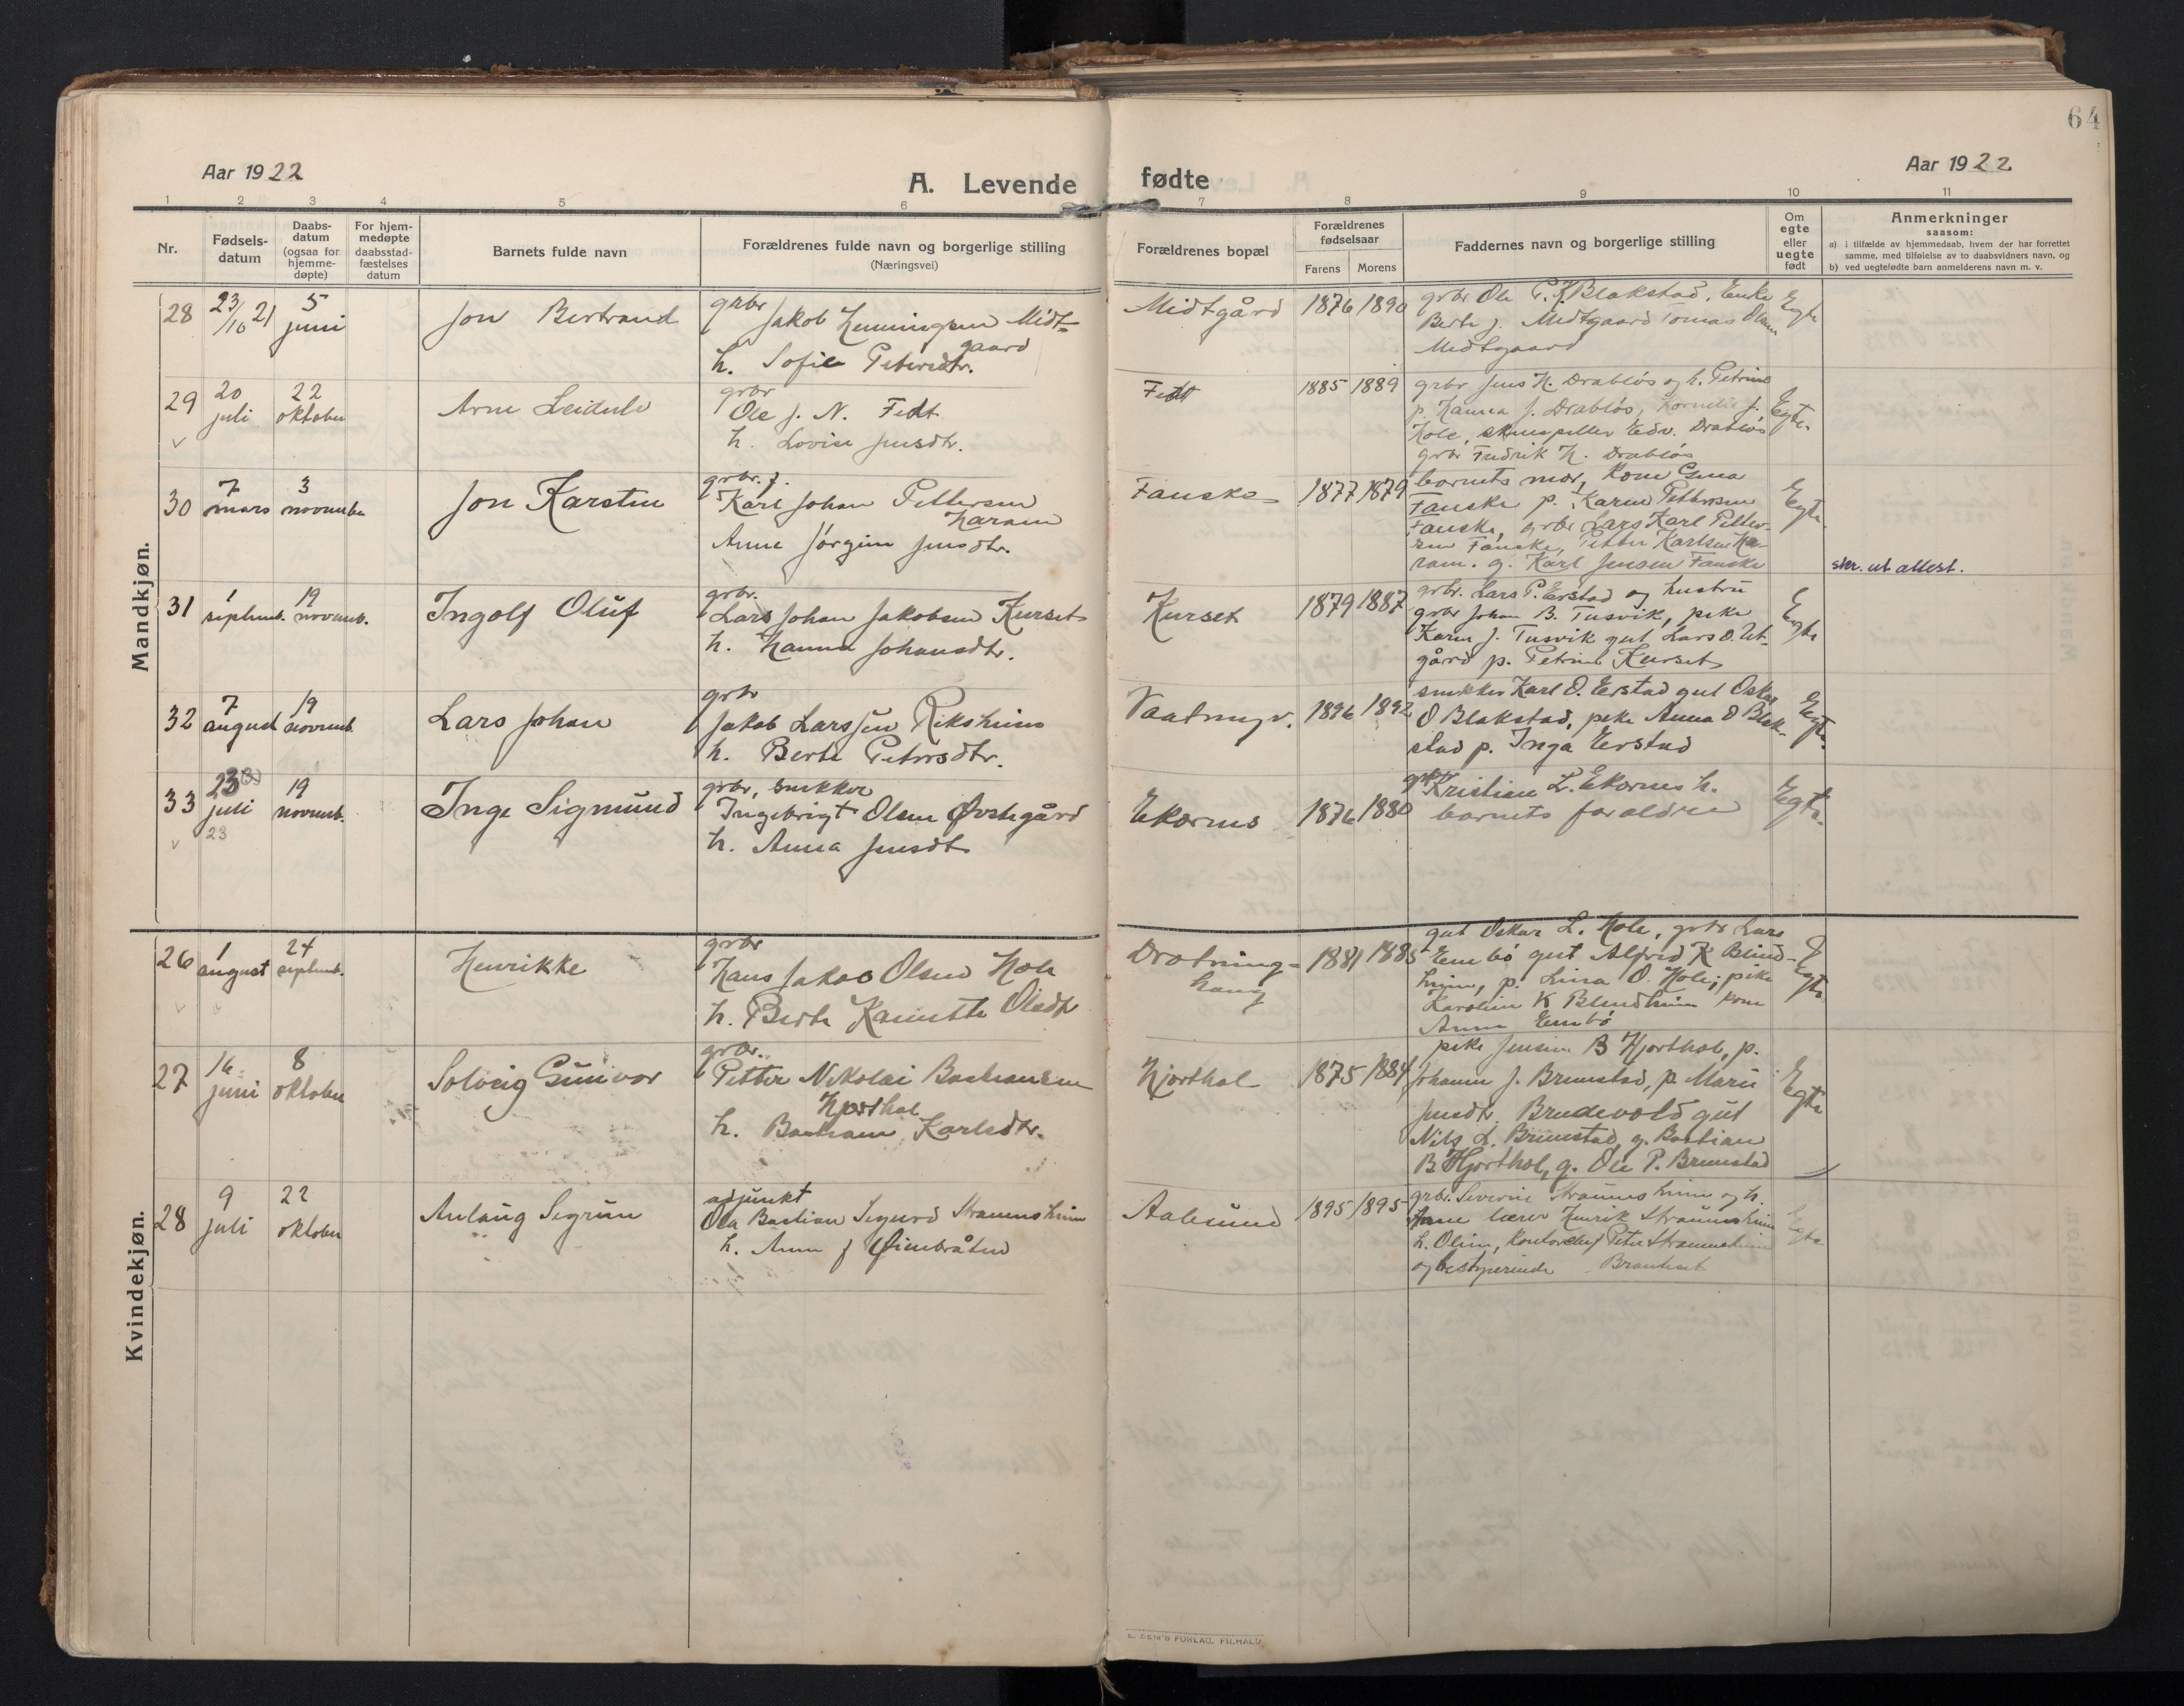 64
Aar 1922
A. Levende fødte
Aar 1922
1 2 3 4 5 6 7 8 9 10 11
Nr.
Fødsels-
datum
Daabs-
datum
(ogsaa for
hjemme-
døpte)
For hjem-
medøpte
daabsstad-
fæstelses
datum
Barnets fulde navn
Forældrenes fulde navn og borgerlige stilling
(Næringsvei)
Forældrenes bopæl
Forældrenes
fødselsaar
Farens Morens
Faddernes navn og borgerlige stilling
Om
egte
eller
uegte
født
Anmerkninger
saasom:
a) i tilfælde av hjemmedaab, hvem der har forrettet
samme, med tilføielse av to daabsvidners navn, og
b) ved uegtefødte barn anmelderens navn m. v.
Mandkjøn.
28
23/10 21
5
juni
Jon Bertrand
grbr
Jakob Henningsen Midt-
gaard
h. Sofie Petersdtr.
Midtgård
1876 1890
grbr Ole P. K Blakstad, Enke
Berte J. Midtgaard Tomas Olsen
Midtgaard
Egte
29
20
juli
22
oktober
Arne Leidulv
grbr
Ole J. N. Fedt
h. Lovise Jensdtr.
Fedt
1885 1889
grbr Jens K. Drabløs og h. Petrine
p. Hanna J. Drabløs, Kornelie J.
Hole, skuespiller Edv. Drabløs
grbr Fredrik K. Drabløs
Egte.
30
7
mars
3
november
Jon Karsten
grbr. f.
Karl Johan Pettersen
Haram
Anne Jørgine Jensdtr.
Fauske
1877 1879
barnets mor, Kone Gina
Fauske p. Karen Pettersen
Fauske, grbr Lars Karl Petter-
sen Fauske, Petter Karlsen Ha-
ram. g. Karl Jensen Fauske
Egte.
skr. ut attest.
31
1
septemb.
19
novemb.
Ingolf Oluf
grbr.
Lars Johan Jakobsen Kurset
h. Hanna Johansdtr.
Kurset
1879 1887
grbr. Lars P. Erstad og hustru
grbr Johan B. Tusvik, pike
Karen J. Tusvik gut Lars O. Ut-
gård p. Petrine Kurset
Egte
32
7
august
19
novemb.
Lars Johan
grbr
Jakob Larssen Riksheim
h. Berte Petersdtr.
1896 1892
snekker Karl O. Erstad gut Oskar
O Blakstad, pike Anna O Blak-
stad p. Inga Erstad
Egte.
33
23
juli
23
19
novemb.
Inge Sigmund
grbr, snekker
Ingebrigt Olsen Øvstegård
h. Anna Jensdt
Ekornes
1876 1880
grbr Kristian L. Ekornes h.
barnets foraldre
Egte.
Kvindekjøn.
26
1
august
24
septemb.
Henrikke
grbr
Hans Jakob Olsen Hole
h. Berte Kanutte Olsdtr
Drotning-
haug
1881 1885
gut Oskar L. Hole, grbr Lars
Embø gut Alfred K Blind-
heim, p. Lina O. Hole; pike
Karoline K Blindheim kone
Anne Embø
Egte.
27
16
juni
8
oktober
Solveig Gunvor
grbr.
Petter Nikolai Bastiansen
Hjorthol
h. Bastiane Karlsdtr.
Hjorthol
1875 1884
pike Jensine B Hjorthol, p.
Johanne J. Brunstad, p. Marie
Jensdtr. Brudevold gut
Nils L. Brunstad, g. Bastian
B Hjorthol, g. Ole P. Brunstad
Egte
28
9
juli
22
oktober
Aulaug Segrun
adjunkt
Ola Bastian Sigurd Straumsheim
h. Anne J Øienbråten
Aalesund
1895 1895
grbr. Severin Straumsheim og h.
Anne lærer Henrik Straumsheim
h. Oline, Kontorchef Peter Straumsheim
og bestyrerinde
Egte
E. SEM'S FORLAG, FILHALD